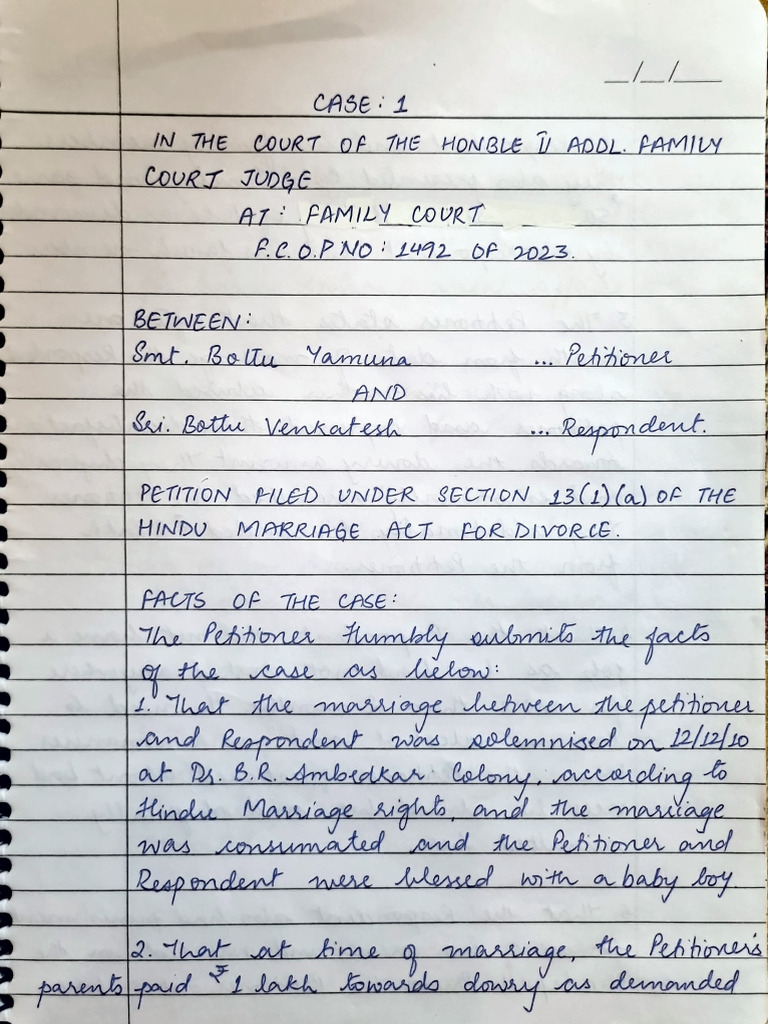 __/__/____
CASE: 1
IN THE COURT OF THE HONBLE II ADDL. FAMILY
COURT JUDGE
AT: FAMILY COURT
F.C.O.P NO: 1492 OF 2023.
BETWEEN:
Smt. Bottu Yamuna ... Petitioner
AND
Sri. Bottu Venkatesh ... Respondent.
PETITION FILED UNDER SECTION 13(1)(a) OF THE
HINDU MARRIAGE ACT FOR DIVORCE.
FACTS OF THE CASE:
The Petitioner Humbly submits the facts
of the case as below:
1. That the marriage between the petitioner
and Respondent was solemnised on 12/12/10
at Dr. B.R. Ambedkar Colony, according to
Hindu Marriage rights, and the marriage
was consumated and the Petitioner and
Respondent were blessed with a baby boy.
2. That at time of marriage, the Petitioner's
parents paid ₹ 1 lakh towards dowry as demanded